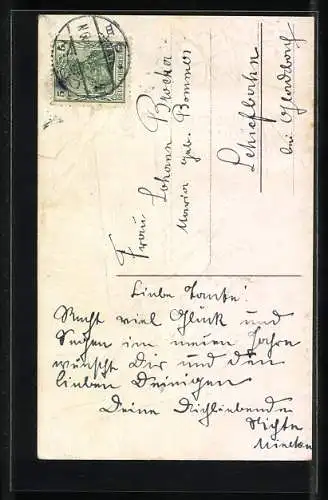 Frau Johann Brocker
Maria geb. Bommes
Lehrefbahn
bei Gladbach
Liebe Tante!
Recht viel Glück und
Segen im neuen Jahre
wünscht Dir und den
lieben Deinigen
Deine Dichliebende
Nichte
5
5